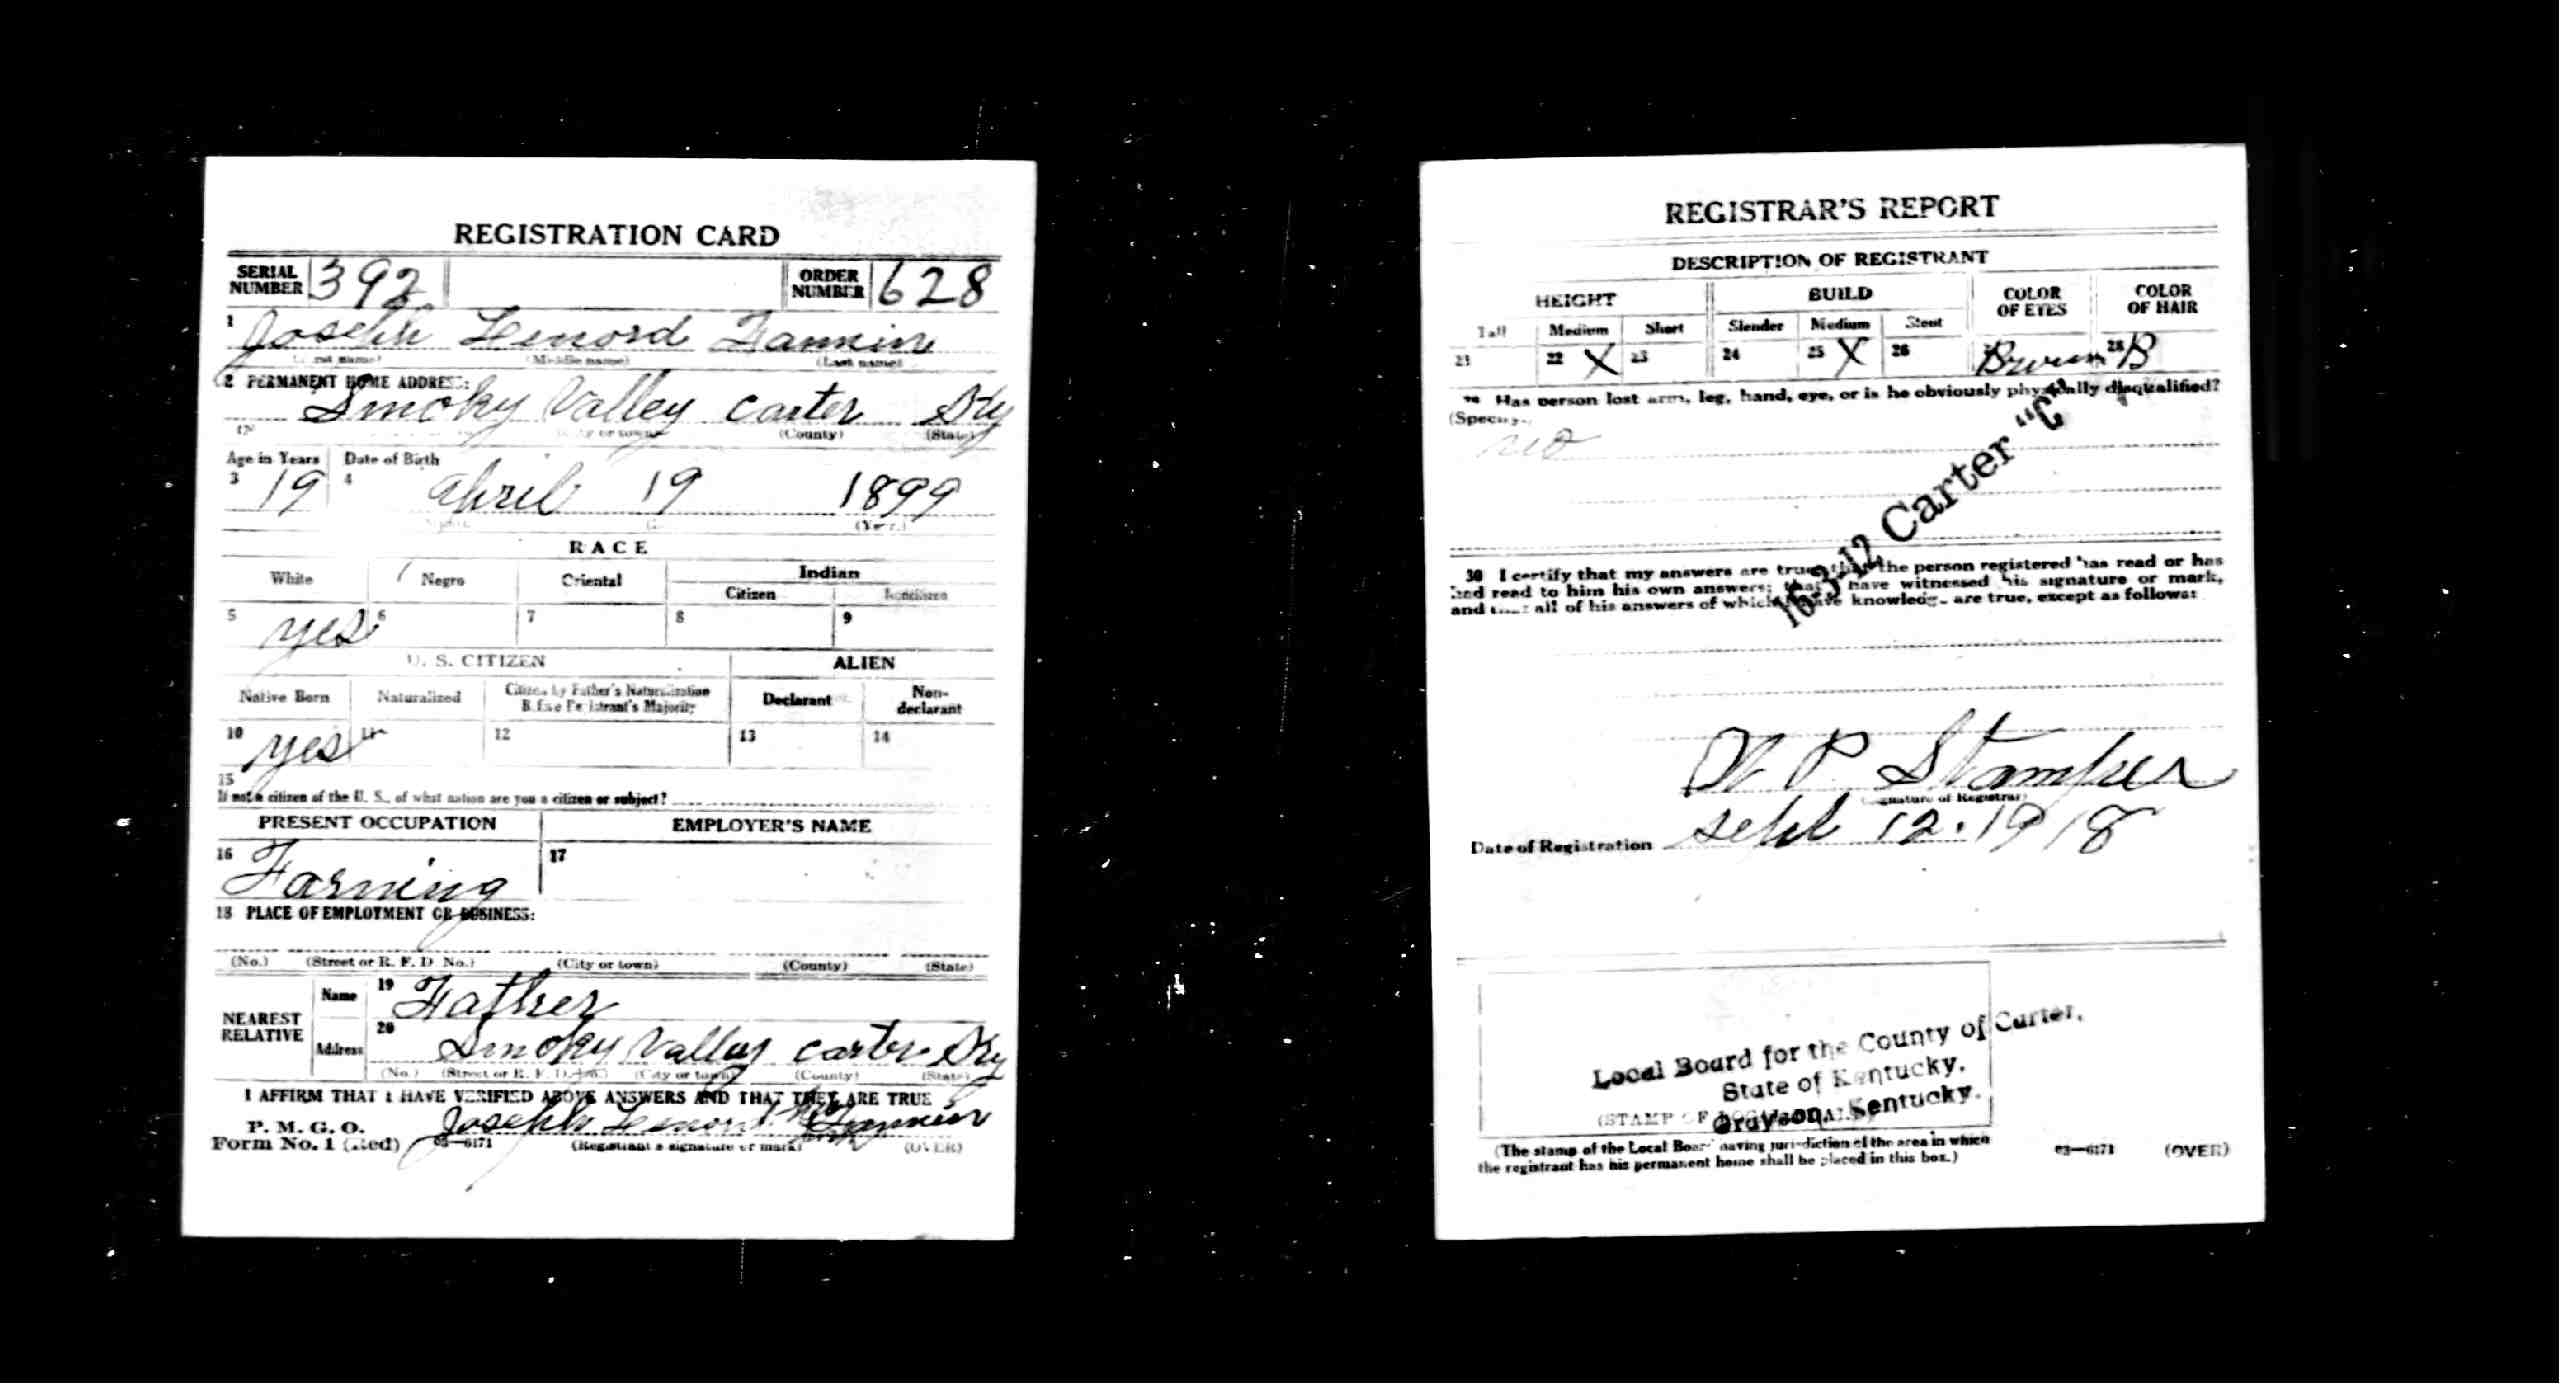 REGISTRATION CARD
SERIAL NUMBER 392 ORDER NUMBER 628
1 Joseph Lenord Fannin
(First name) (Middle name) (Last name)
2 PERMANENT HOME ADDRESS:
Smoky Valley Carter Ky
(City or town) (County) (State)
Age in Years Date of Birth
3 19 4 April 19 1899
(Year.)
RACE
White Negro Oriental Indian
Citizen Noncitizen
5 yes 6 7 8 9
U. S. CITIZEN ALIEN
Native Born Naturalized Citizen by Father's Naturalization Before Registrant's Majority Declarant Non-declarant
10 yes 11 12 13 14
15
If not a citizen of the U. S., of what nation are you a citizen or subject?
PRESENT OCCUPATION EMPLOYER'S NAME
16 Farming 17
18 PLACE OF EMPLOYMENT OR BUSINESS:
(No.) (Street or R. F. D. No.) (City or town) (County) (State)
NEAREST RELATIVE Name 19 Father
Address 20 Smoky Valley Carter Ky
(No.) (Street or R. F. D. No.) (City or town) (County) (State)
I AFFIRM THAT I HAVE VERIFIED ABOVE ANSWERS AND THAT THEY ARE TRUE
P. M. G. O.
Form No. 1 (Red) 03—6171 Joseph Lenord Fannin
(Registrant's signature or mark) (OVER)
REGISTRAR'S REPORT
DESCRIPTION OF REGISTRANT
HEIGHT BUILD COLOR OF EYES COLOR OF HAIR
Tall Medium Short Slender Medium Stout
21 22 X 23 24 25 X 26 Brown 28 B
29 Has person lost arm, leg, hand, eye, or is he obviously physically disqualified?
(Specify.)
no
16-3-12 Carter "C"
30 I certify that my answers are true; that the person registered has read or has
had read to him his own answers; that I have witnessed his signature or mark,
and that all of his answers of which I have knowledge are true, except as follows:
W P Stamper
(Signature of Registrar)
Date of Registration Sept 12. 1918
Local Board for the County of Carter,
State of Kentucky.
Grayson, Kentucky.
(STAMP OF LOCAL BOARD)
(The stamp of the Local Board having jurisdiction of the area in which
the registrant has his permanent home shall be placed in this box.)
03—6171 (OVER)